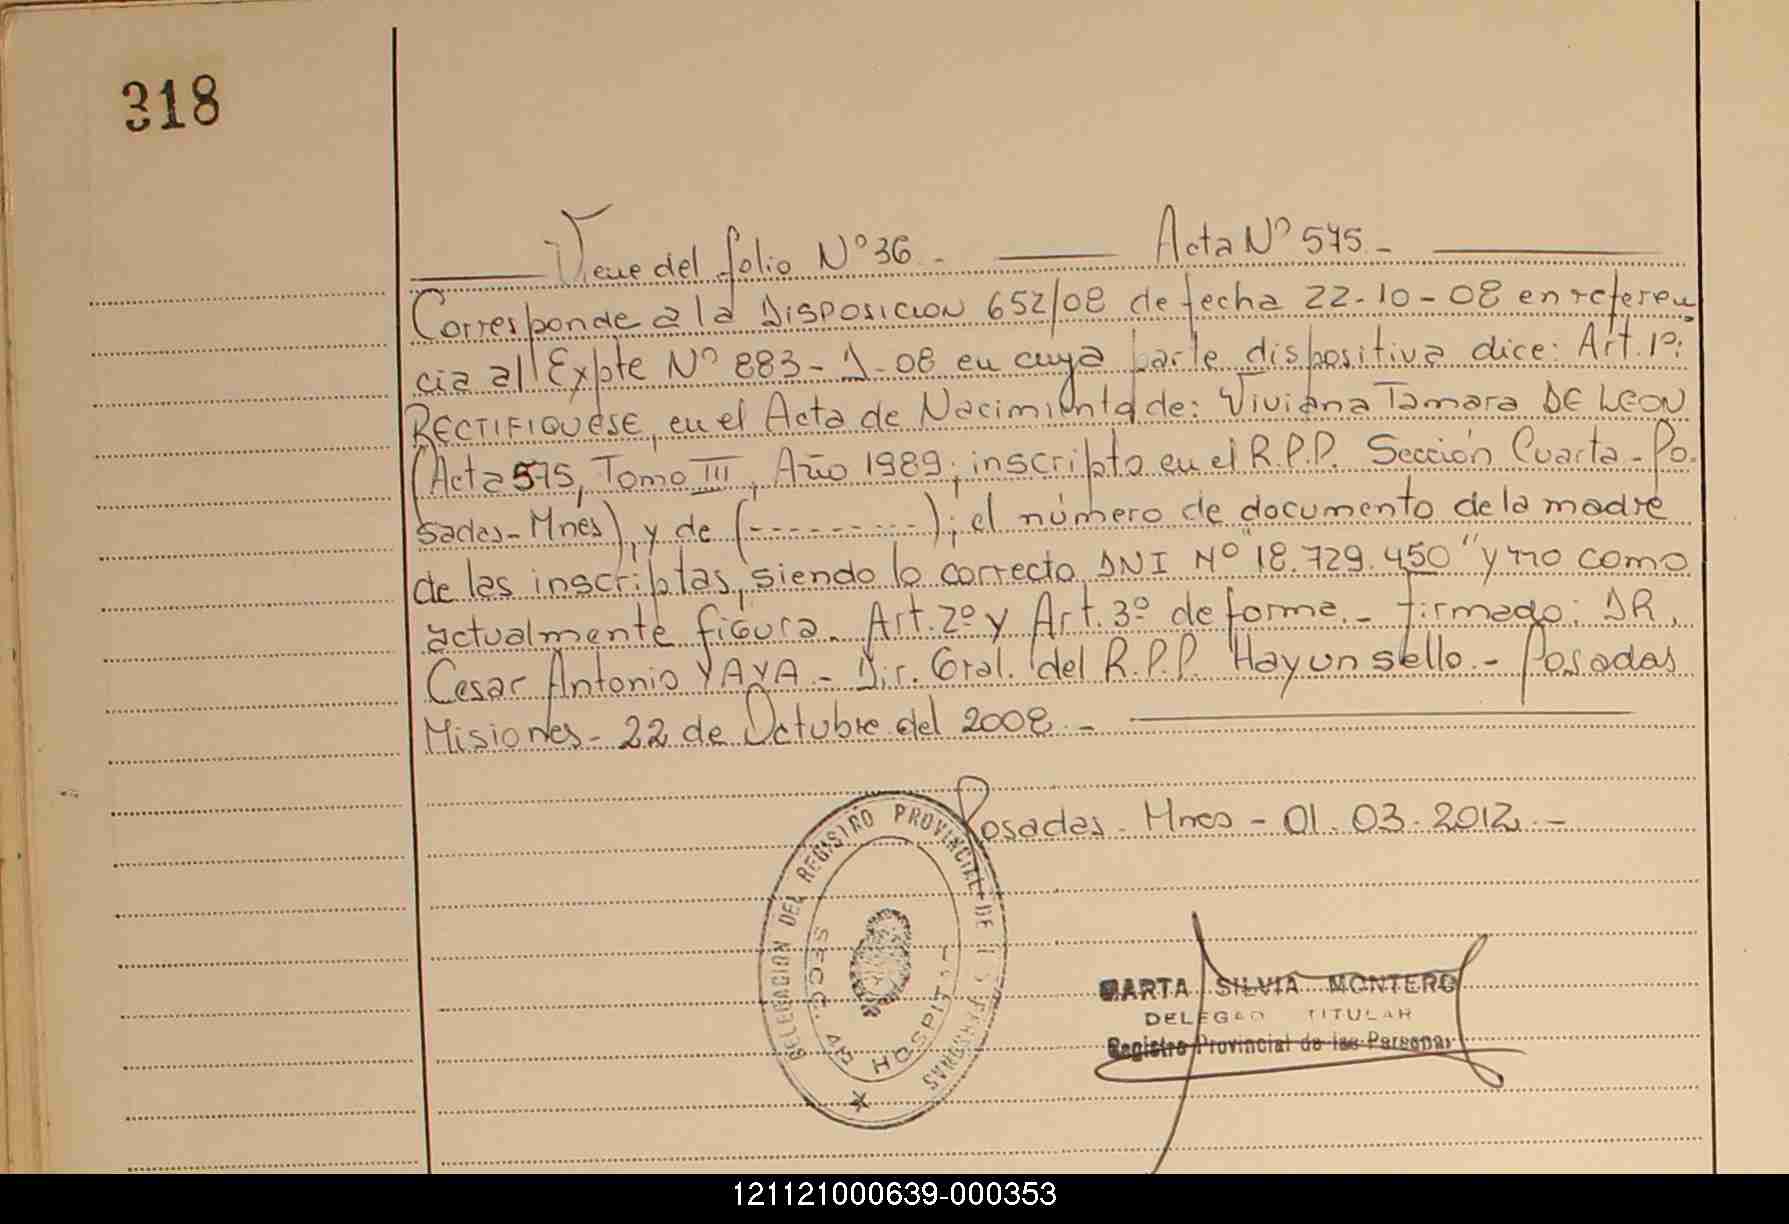 318
Viene del folio Nº 36 - Acta Nº 575 -
Corresponde a la DISPOSICION 652/08 de fecha 22-10-08 en referen
cia al Expte Nº 883-1-08 en cuya parte dispositiva dice: Art. 1º:
RECTIFIQUESE, en el Acta de Nacimiento de: Viviana Tamara DE LEON
(Acta 575, Tomo III, Año 1989; inscripta en el R.P.P. Sección Cuarta - Po-
sadas - Mnes), y de (----------); el número de documento de la madre
de las inscriptas, siendo lo correcto DNI Nº "18.729.450" y no como
actualmente figura. Art. 2º y Art. 3º de forma. - Firmado: DR.
Cesar Antonio YAYA - Dir. Gral. del R.P.P. Hay un sello. - Posadas
Misiones - 22 de Octubre del 2008 -
Posadas - Mnes - 01.03.2012. -
DELEGACION DEL REGISTRO PROVINCIAL DE LAS PERSONAS
SECC. 4ta HOSPITAL
MARTA SILVIA MONTERO
DELEGADO TITULAR
Registro Provincial de las Personas
121121000639-000353